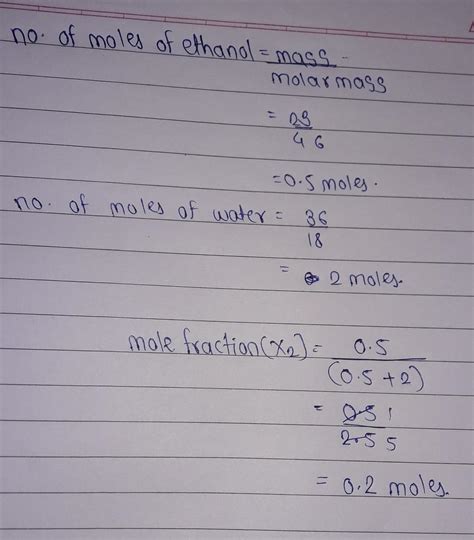 no. of moles of ethanol = mass
molar mass
= 23
46
= 0.5 moles.
no. of moles of water = 36
18
= 2 moles.
mole fraction (x2) = 0.5
(0.5 + 2)
= 0.5 1
2.5 5
= 0.2 moles.